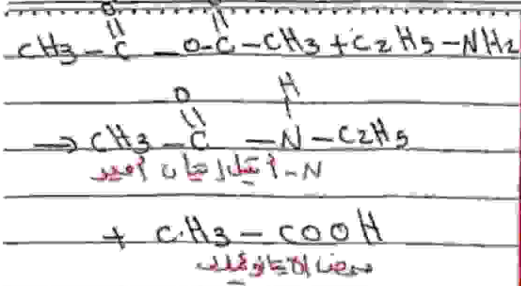 O O
CH3 – C – O – C – CH3 + C2H5 – NH2
O H
→ CH3 – C – N – C2H5
N – أثيل إيثان أميد
+ CH3 – COOH
حمض الإيثانوئيك